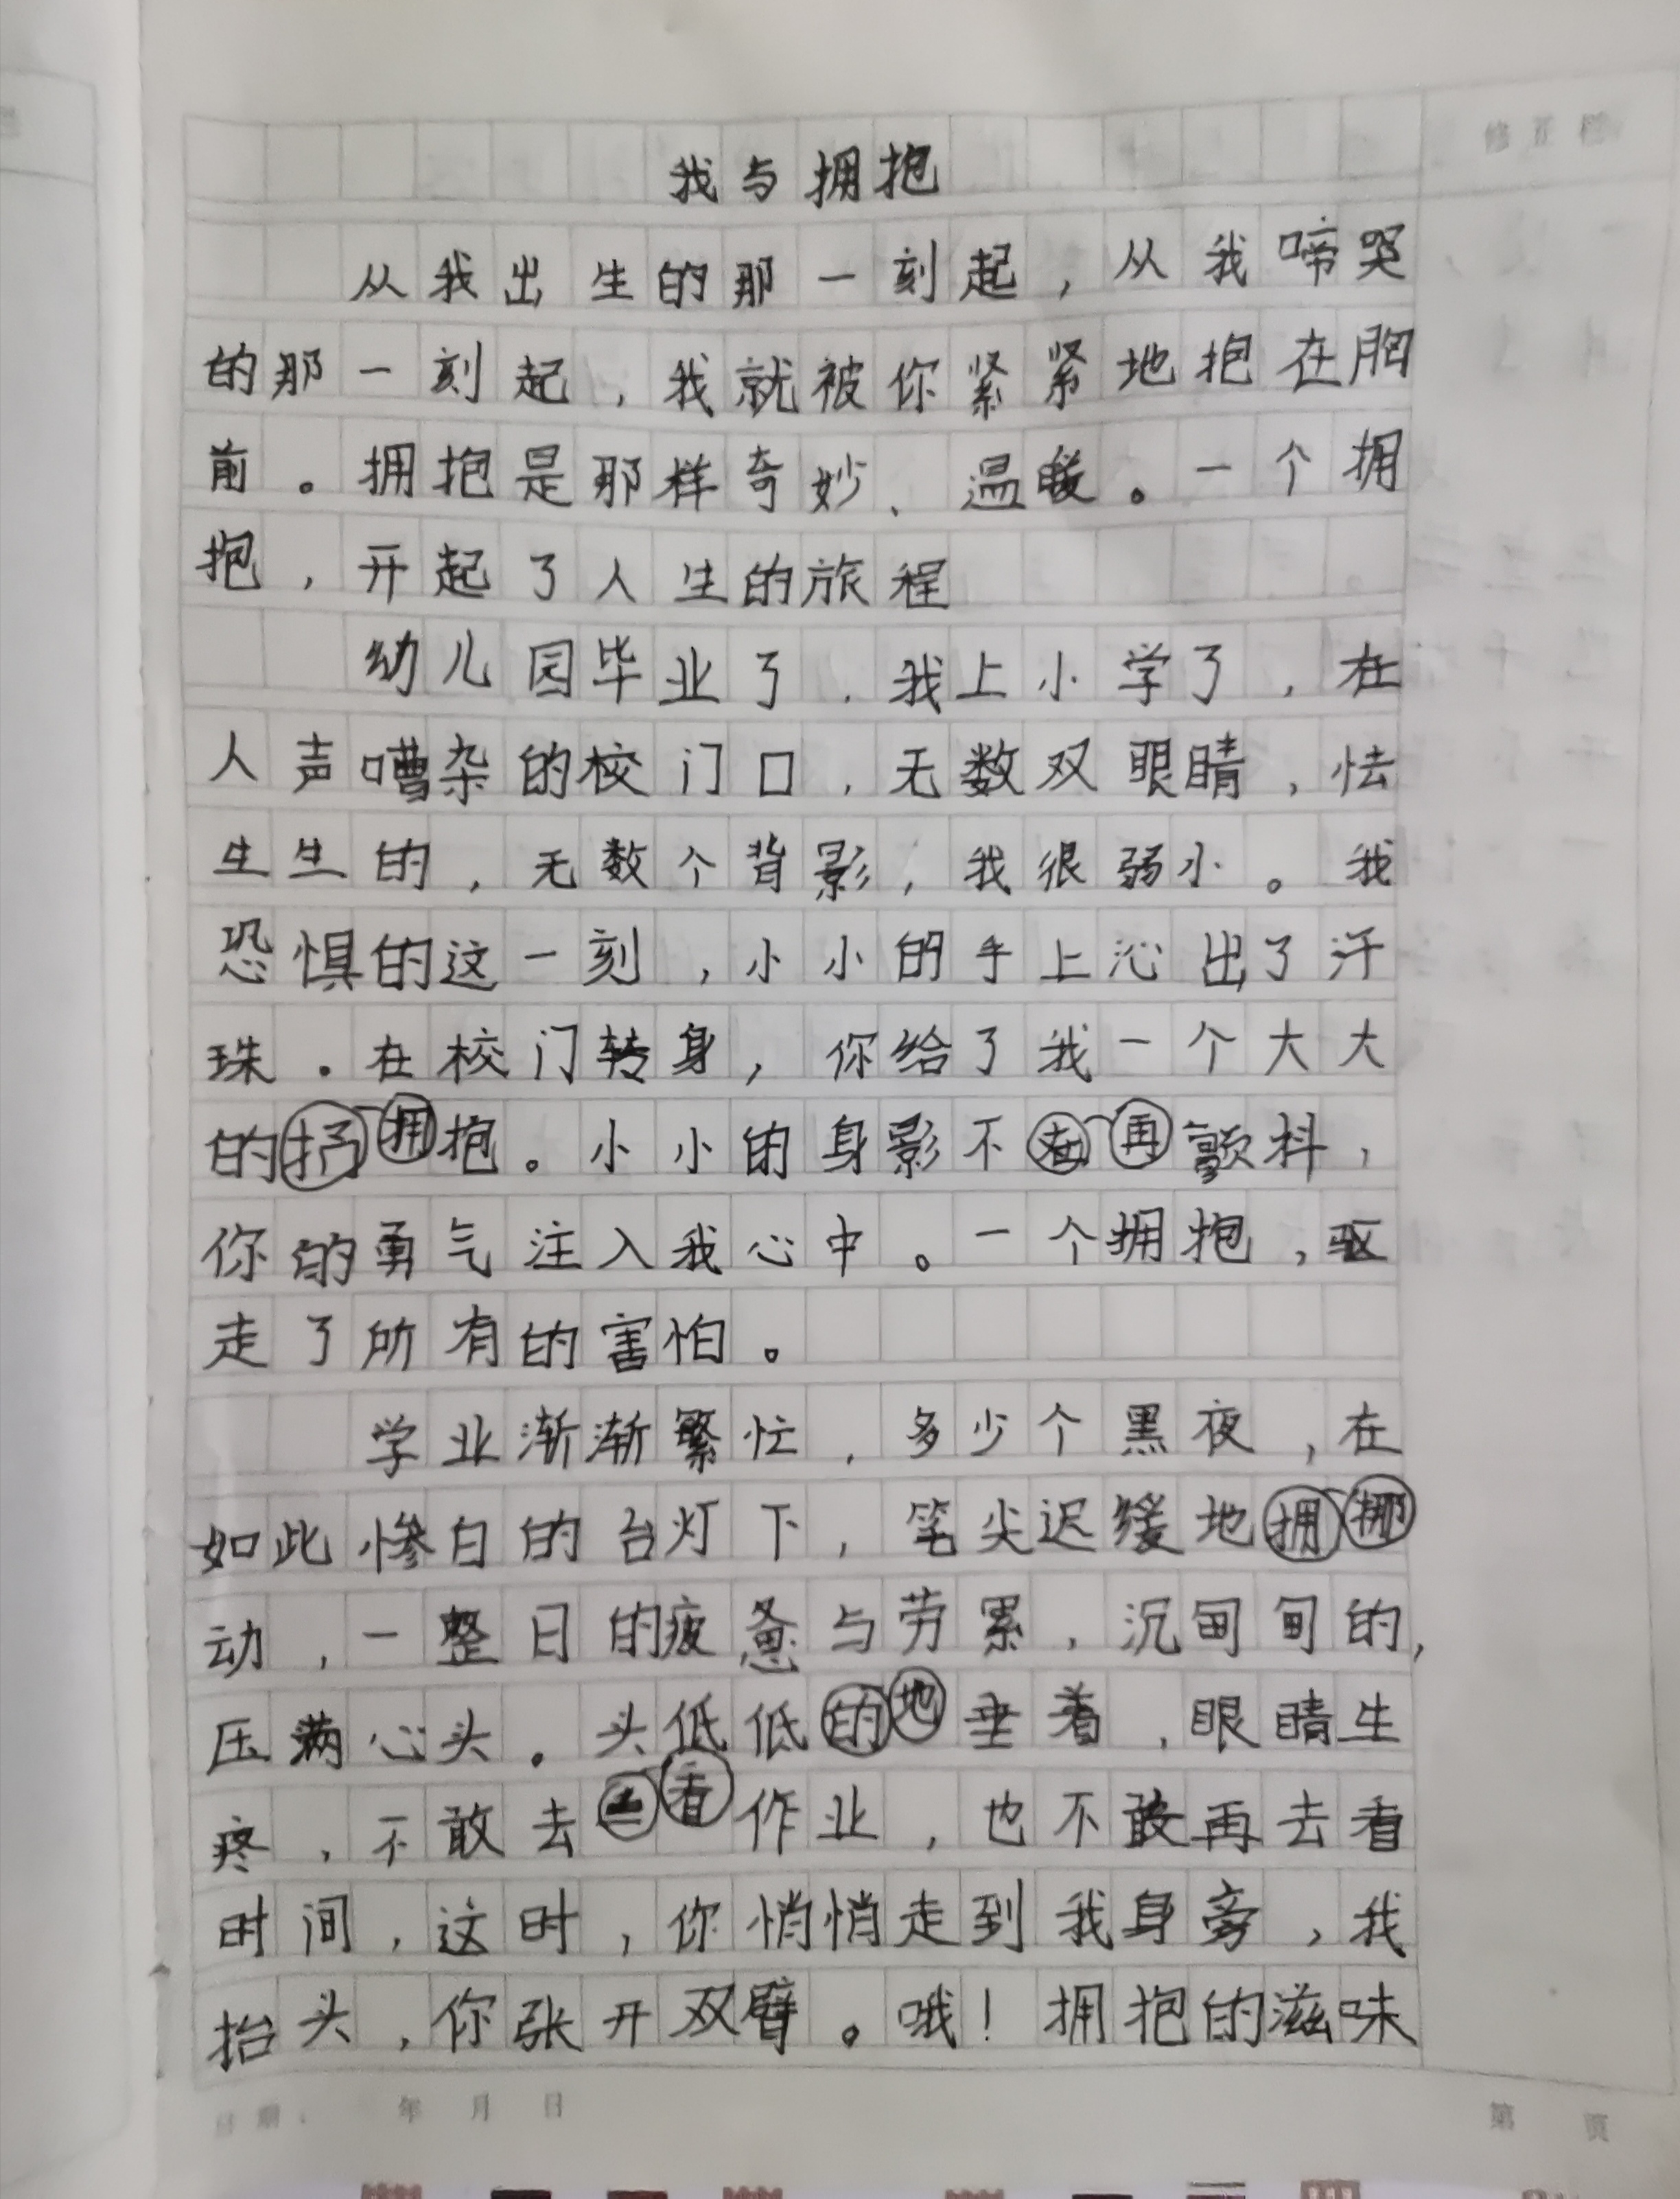 修正栏
我与拥抱
从我出生的那一刻起，从我啼哭
的那一刻起，我就被你紧紧地抱在胸
前。拥抱是那样奇妙、温暖。一个拥
抱，开起了人生的旅程
幼儿园毕业了，我上小学了，在
人声嘈杂的校门口，无数双眼睛，怯
生生的，无数个背影，我很弱小。我
恐惧的这一刻，小小的手上沁出了汗
珠。在校门转身，你给了我一个大大
的拥抱。小小的身影不在再颤抖，
你的勇气注入我心中。一个拥抱，驱
走了所有的害怕。
学业渐渐繁忙，多少个黑夜，在
如此惨白的台灯下，笔尖迟缓地拥挪
动，一整日的疲惫与劳累，沉甸甸的，
压满心头。头低低的地垂着，眼睛生
疼，不敢去看作业，也不敢再去看
时间，这时，你悄悄走到我身旁，我
抬头，你张开双臂。哦！拥抱的滋味
日期： 年 月 日
第 页